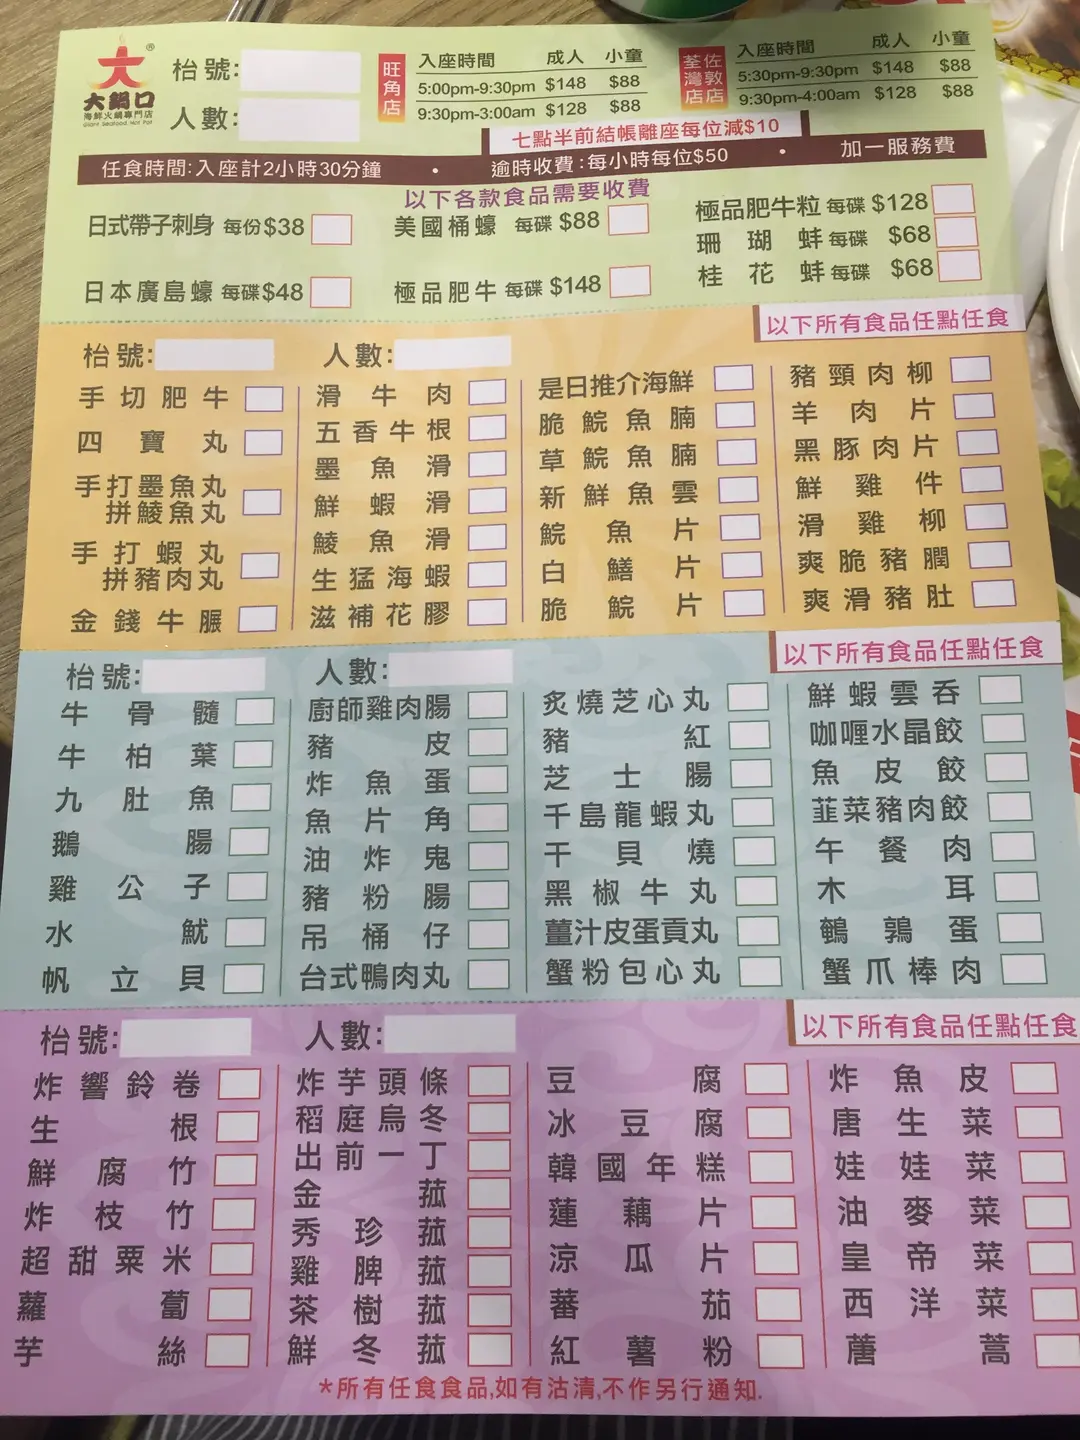 大
®
大鍋口
海鮮火鍋專門店
Giant Seafood Hot Pot
枱號:
人數:
旺角店
入座時間 成人 小童
5:00pm-9:30pm $148 $88
9:30pm-3:00am $128 $88
荃灣店 佐敦店
入座時間 成人 小童
5:30pm-9:30pm $148 $88
9:30pm-4:00am $128 $88
七點半前結帳離座每位減$10
任食時間:入座計2小時30分鐘 • 逾時收費:每小時每位$50 • 加一服務費
以下各款食品需要收費
日式帶子刺身 每份$38
美國桶蠔 每碟 $88
極品肥牛粒 每碟 $128
珊瑚蚌 每碟 $68
桂花蚌 每碟 $68
日本廣島蠔 每碟$48
極品肥牛 每碟 $148
以下所有食品任點任食
枱號:
人數:
手切肥牛
四寶丸
手打墨魚丸
拼鯪魚丸
手打蝦丸
拼豬肉丸
金錢牛𦟌
滑牛肉
五香牛根
墨魚滑
鮮蝦滑
鯪魚滑
生猛海蝦
滋補花膠
是日推介海鮮
脆鯇魚腩
草鯇魚腩
新鮮魚雲
鯇魚片
白鱔片
脆鯇片
豬頸肉柳
羊肉片
黑豚肉片
鮮雞件
滑雞柳
爽脆豬膶
爽滑豬肚
以下所有食品任點任食
枱號:
人數:
牛骨髓
牛柏葉
九肚魚
鵝腸
雞公子
水魷
帆立貝
廚師雞肉腸
豬皮
炸魚蛋
魚片角
油炸鬼
豬粉腸
吊桶仔
台式鴨肉丸
炙燒芝心丸
豬紅
芝士腸
千島龍蝦丸
干貝燒
黑椒牛丸
薑汁皮蛋貢丸
蟹粉包心丸
鮮蝦雲吞
咖喱水晶餃
魚皮餃
韮菜豬肉餃
午餐肉
木耳
鵪鶉蛋
蟹爪棒肉
以下所有食品任點任食
枱號:
人數:
炸響鈴卷
生根
鮮腐竹
炸枝竹
超甜粟米
蘿蔔
芋絲
炸芋頭條
稻庭烏冬
出前一丁
金菰
秀珍菰
雞脾菰
茶樹菰
鮮冬菰
豆腐
冰豆腐
韓國年糕
蓮藕片
涼瓜片
蕃茄
紅薯粉
炸魚皮
唐生菜
娃娃菜
油麥菜
皇帝菜
西洋菜
蓎蒿
*所有任食食品,如有沽清,不作另行通知.